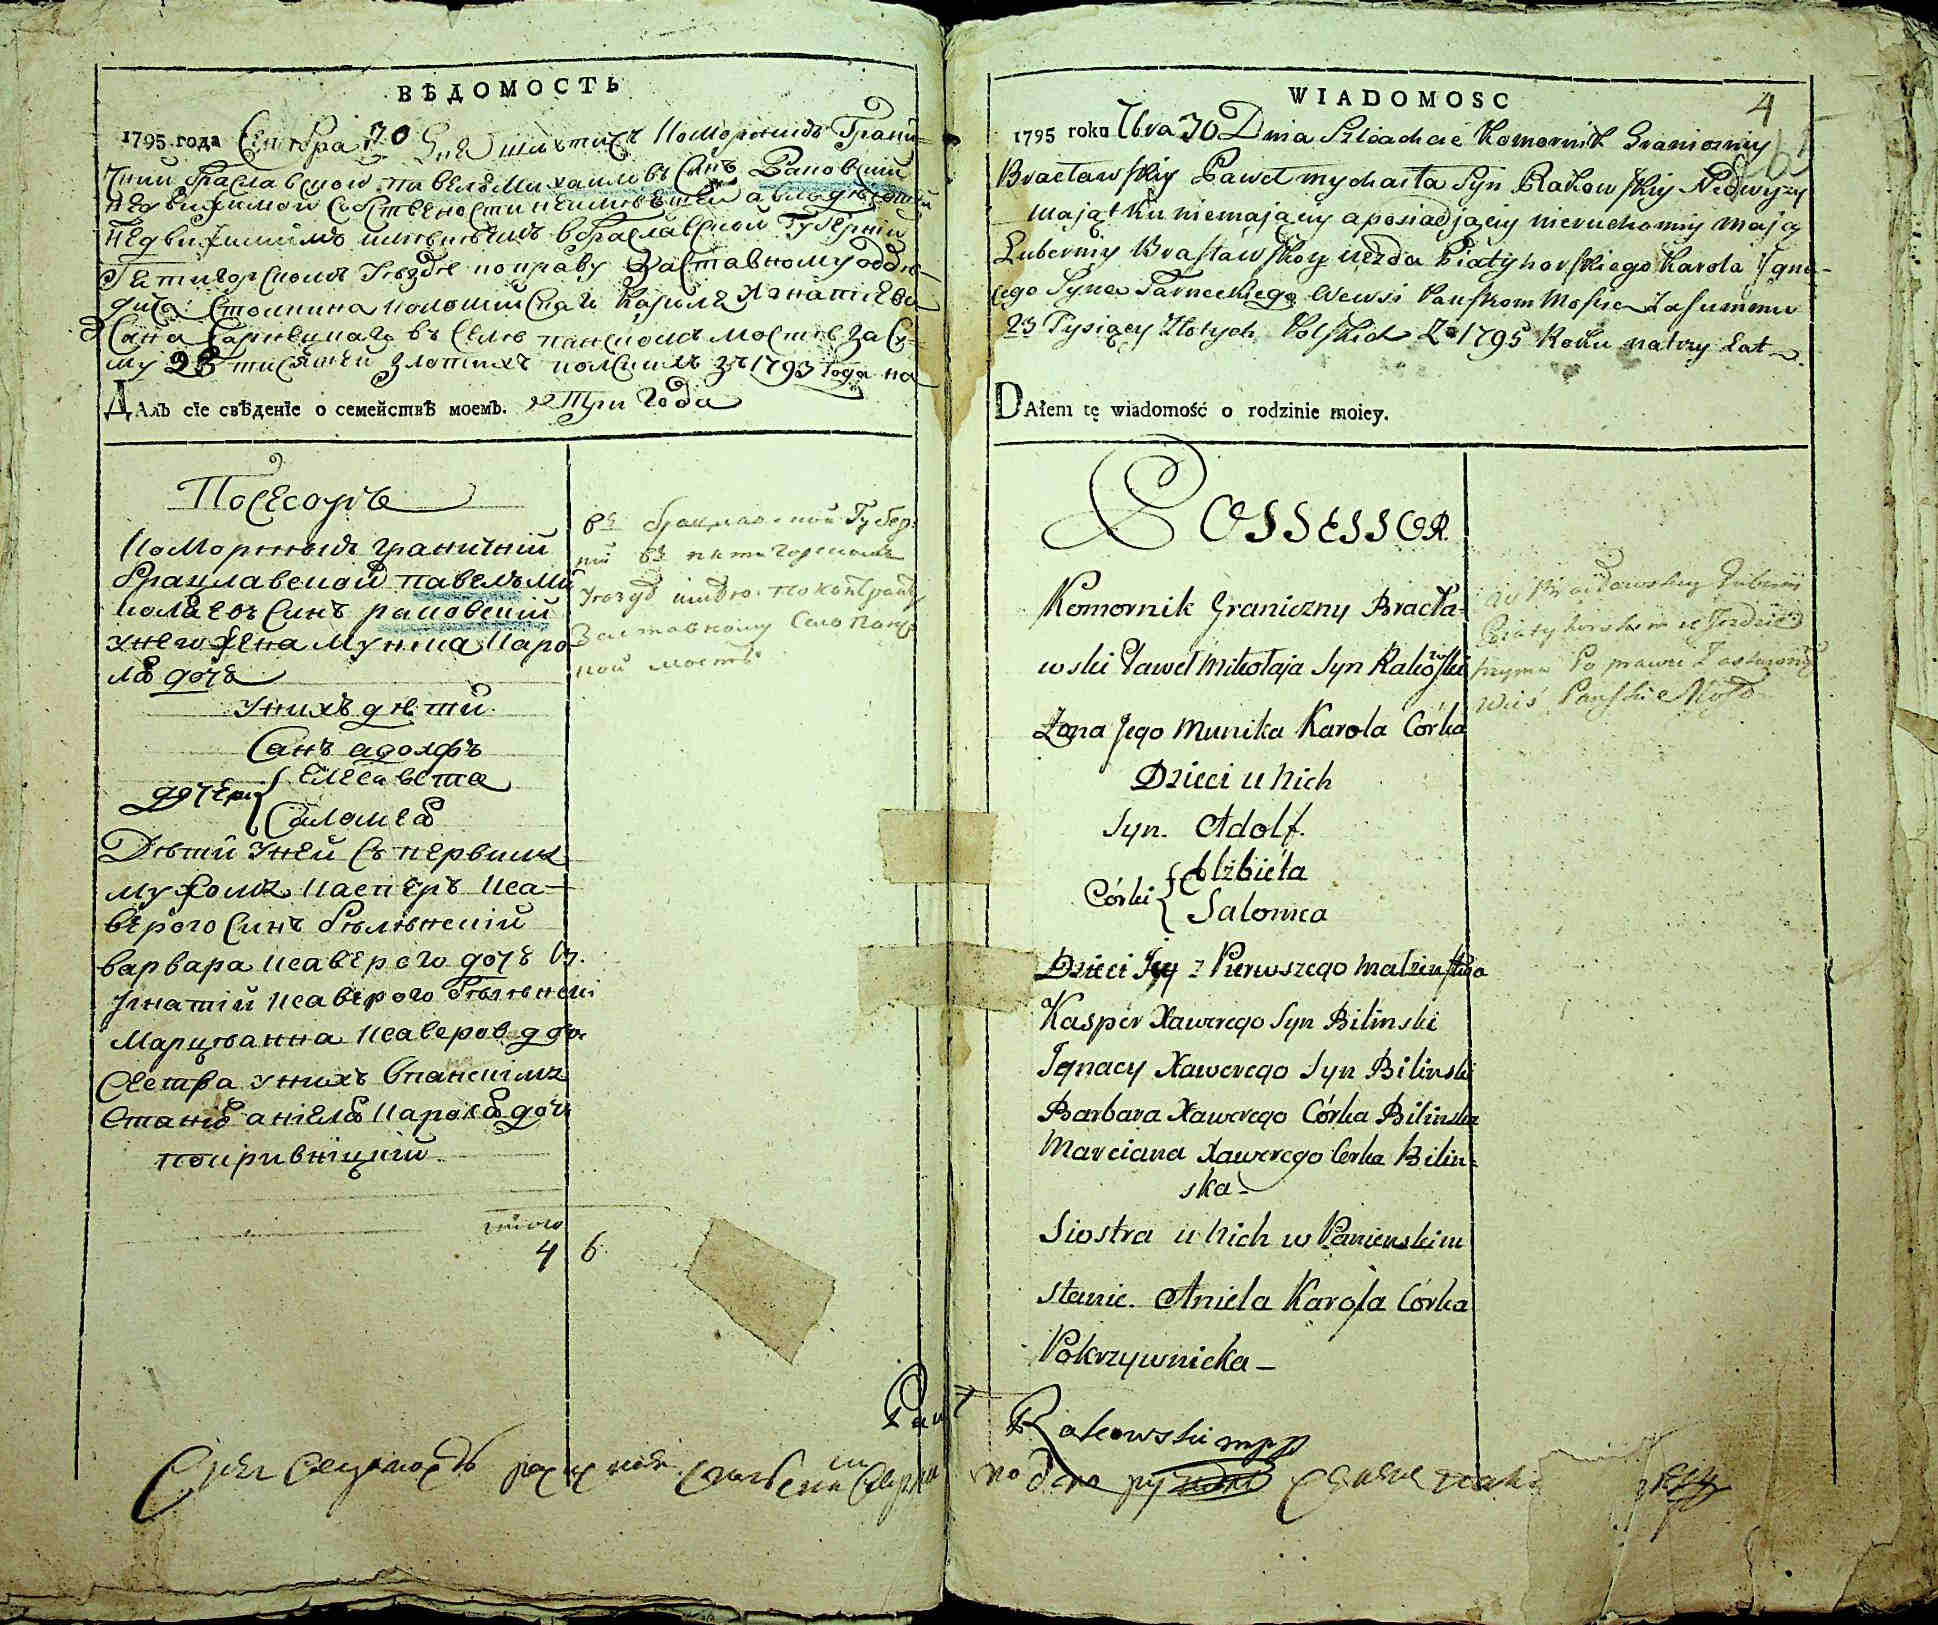 ВѢДОМОСТЬ
1795 года Сентебра 30 Дня шляхтичъ Коморникъ Грани-
чний Браславской Павелъ Михаиловъ Синъ Раковский
недвижимой собствености неимѣетъ а владѣетъ
недвижимимъ имѣниемъ вБраславской Губернии
Петигорскомъ Уездѣ поправу Заставному отдо-
Столника Карола Игнатиева
Сина Тарнецкаго въ Селѣ панскомъ мостѣ за Су-
му 23 тисячеи злотихъ полскихъ зъ 1793 года на
ДАлъ сіе свѣденіе о семействѣ моемъ. Три Года
Посесоръ
Коморникъ граничній
брацлавской павелъ ми
колаевъ Синъ раковский
унего жена Муника Каро
ля дочь
Унихъ дѣти
Синъ адолфъ
дочери { Елисавета
Саломея
Дѣти унеи съ первимъ
мужомъ Касперъ Кса-
верого Синъ Бѣлѣнский
варвара Ксаверого дочъ
Игнатий Ксаверого Бѣлѣнски
Марцѣанна Ксаверова до
Сестра унихъ впанскимъ
Станѣ анѣеля Кароля дочь
покривнѣцкий
итого
4 6
въ брацлавской Губер-
нии въ пятигорскомъ
Уездѣ имѣю поконтракту
Заставному Село Панс
кой мостъ
WIADOMOSC
4
1795 roku 7bra 30 Dnia Szlachcic Komornik Graniczny
Bracławskiy Paweł mychała Syn Rakowskiy Nedwyzy
mająt ku niemający a posiadjący nieruchomy mają
Guberniy Brasławskoy uezda Piatyhorskiego Karola Igna-
cego Syna Tarneckiego Wewsi Panskom Moście Zasummu
23 Tysięcy Złotych Polskich Z 1795 Roku natrzy Lat
DAłem tę wiadomość o rodzinie moiey.
POSSESSOR
Komornik Graniczny Bracła-
wski Paweł Mikołaja Syn Rakowski
Zona Jego Munika Karola Córka
Dzieci u Nich
Syn. Adolf.
Córki { Elżbieta
Salomea
Dzieci Jey z Pierwszego małzenstwa
Kasper Xawerego Syn Bilinski
Ignacy Xawerego Syn Bilinski
Barbara Xawerego Córka Bilinska
Marciana Xawerego Corka Bilin-
ska-
Siostra u Nich w Panienskim
stanie. Aniela Karola Córka
Pokrzywnicka-
w Bracławskiey Gubernii
Piatyhorskim uezdzie
trzyma Po prawu Zastawnym
Wieś Panskie Mosto
Paweł Rakowski mpp